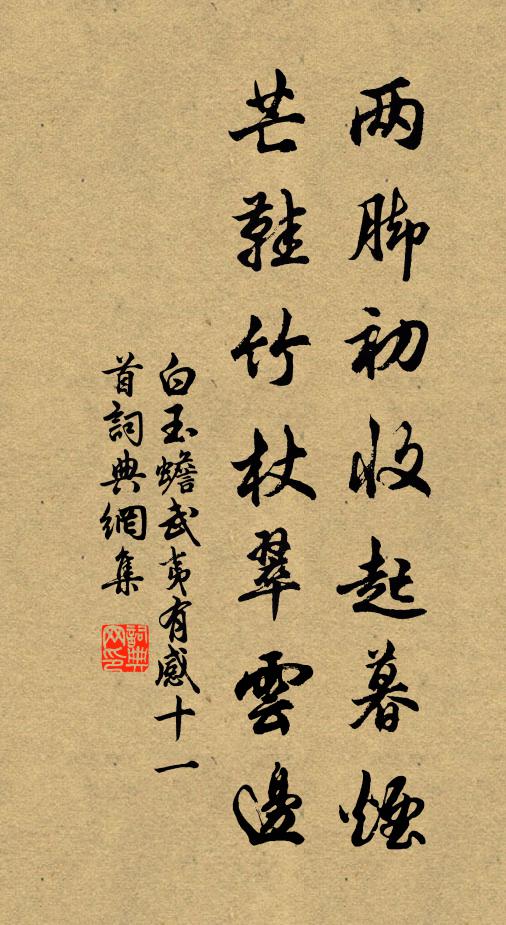 两脚初收起暮煙
芒鞋竹杖翠雲邊
白玉蟾武夷有感十一
首詞典網集
詞典
网印